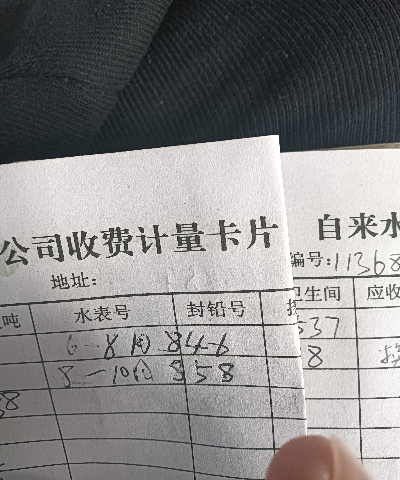 公司收费计量卡片
地址:
吨 水表号 封铅号
6--8月 846
8—10月 858
8
自来水
编号:11368
卫生间 应收
537
8